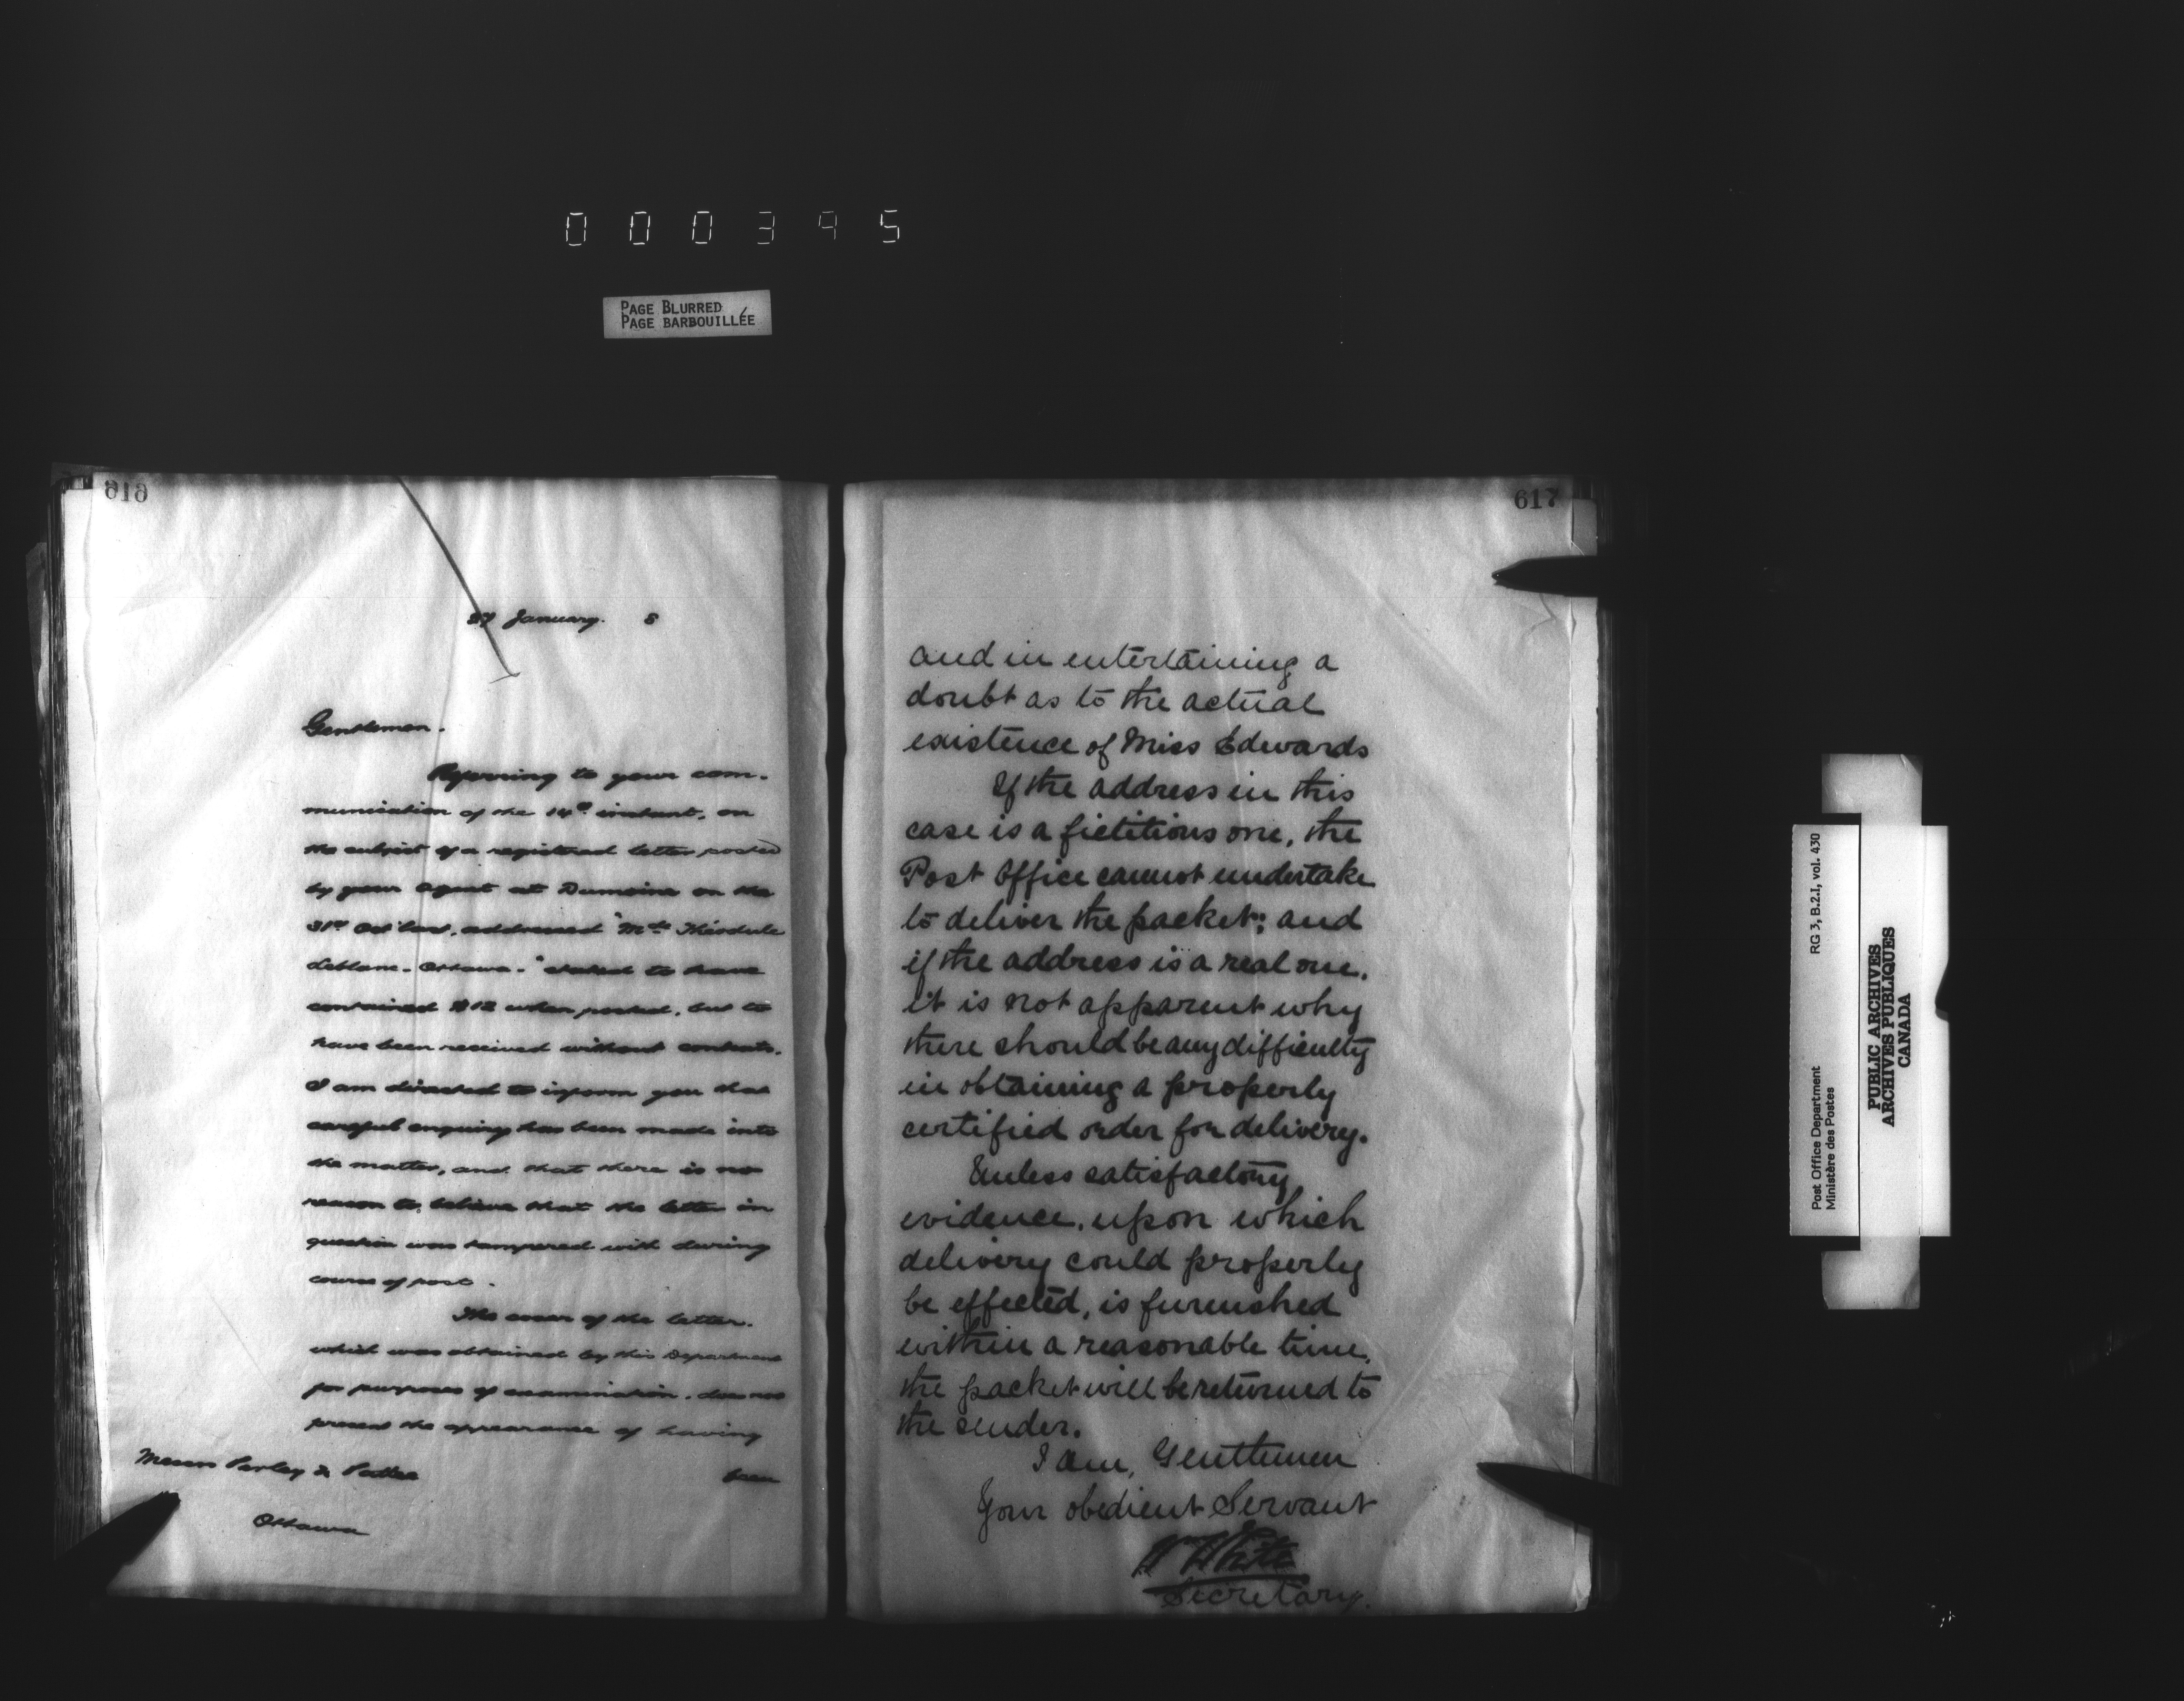 000345
PAGE BLURRED
PAGE BARBOUILLÉE
616
27 January. 8
Gentlemen.
Referring to your com-
munication of the 14th instant, on
the subject of a registered letter posted
by your agent at Dumoine on the
31st Oct last, addressed "Mrs Théodule
Leblanc - Ottawa -" stated to have
contained $12 when posted, but to
have been received without contents.
I am directed to inform you that
careful enquiry has been made into
the matter, and that there is no
reason to believe that the letter in
question was tampered with during
course of post.
The cover of the letter.
which was obtained by this Department
for purposes of examination, does not
present the appearance of having
been
Messrs Perley & Pattee
Ottawa
617
and in entertaining a
doubt as to the actual
existence of Miss Edwards
If the address in this
case is a fictitious one, the
Post Office cannot undertake
to deliver the packet; and
if the address is a real one,
it is not apparent why
there should be any difficulty
in obtaining a properly
certified order for delivery.
Unless satisfactory
evidence, upon which
delivery could properly
be effected, is furnished
within a reasonable time,
the packet will be returned to
the sender.
I am, Gentlemen
Your obedient Servant
W White
Secretary.
Post Office Department
Ministère des Postes
RG 3, B.2.I, vol. 430
PUBLIC ARCHIVES
ARCHIVES PUBLIQUES
CANADA